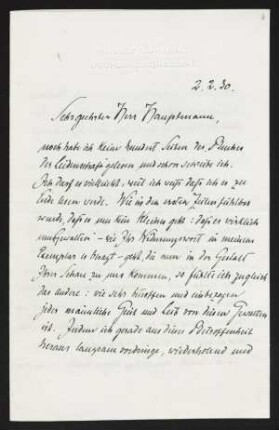 2.2.30.
Sehr geehrter Herr Hauptmann,
noch habe ich keine hundert Seiten des Buches
der Leidenschaft gelesen und schon schreibe ich.
Ich darf es vielleicht, weil ich weiß daß ich es zu
Ende lesen werde. Wie in den ersten Zeilen fühlbar
wurde, daß es um kein Kleines geht: daß es wirklich
um Gewalten – wie Ihr Widmungswort in meinem
Exemplar es sagt – geht, die nun in der Gestalt
Ihrer Schau zu uns kommen, so fühlte ich zugleich
das andere: wie sehr betroffen und einbezogen
jeder männliche Geist und Leib von diesen Gewalten
ist. Indem ich gerade aus dieser Betroffenheit
heraus langsam vordringe, wiederholend und